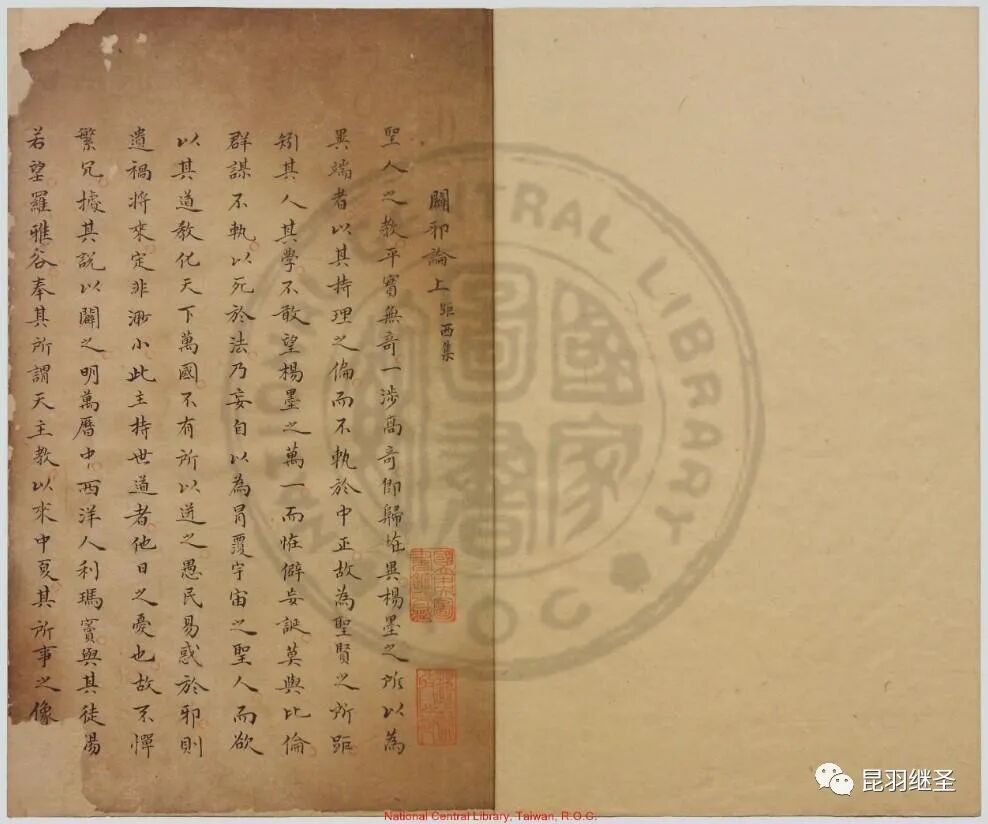 闢邪論上 距西集
聖人之教平實無奇一涉高奇即歸怪異楊墨之所以為
異端者以其持理之偏而不軌於中正故為聖賢之所距
矧其人其學不敢望楊墨之萬一而怪僻妄誕莫與比倫
群謀不軌以死於法乃妄自以為冐覆宇宙之聖人而欲
以其道教化天下萬國不有所以迸之愚民易惑於邪則
遺禍將來定非渺小此主持世道者他日之憂也故不憚
繁冗據其説以闢之明萬曆中西洋人利瑪竇與其徒湯
若望羅雅谷奉其所謂天主教以來中夏其所事之像
國家圖書館
CENTRAL LIBRARY
ROC
昆羽继圣
National Central Library, Taiwan, R.O.C.